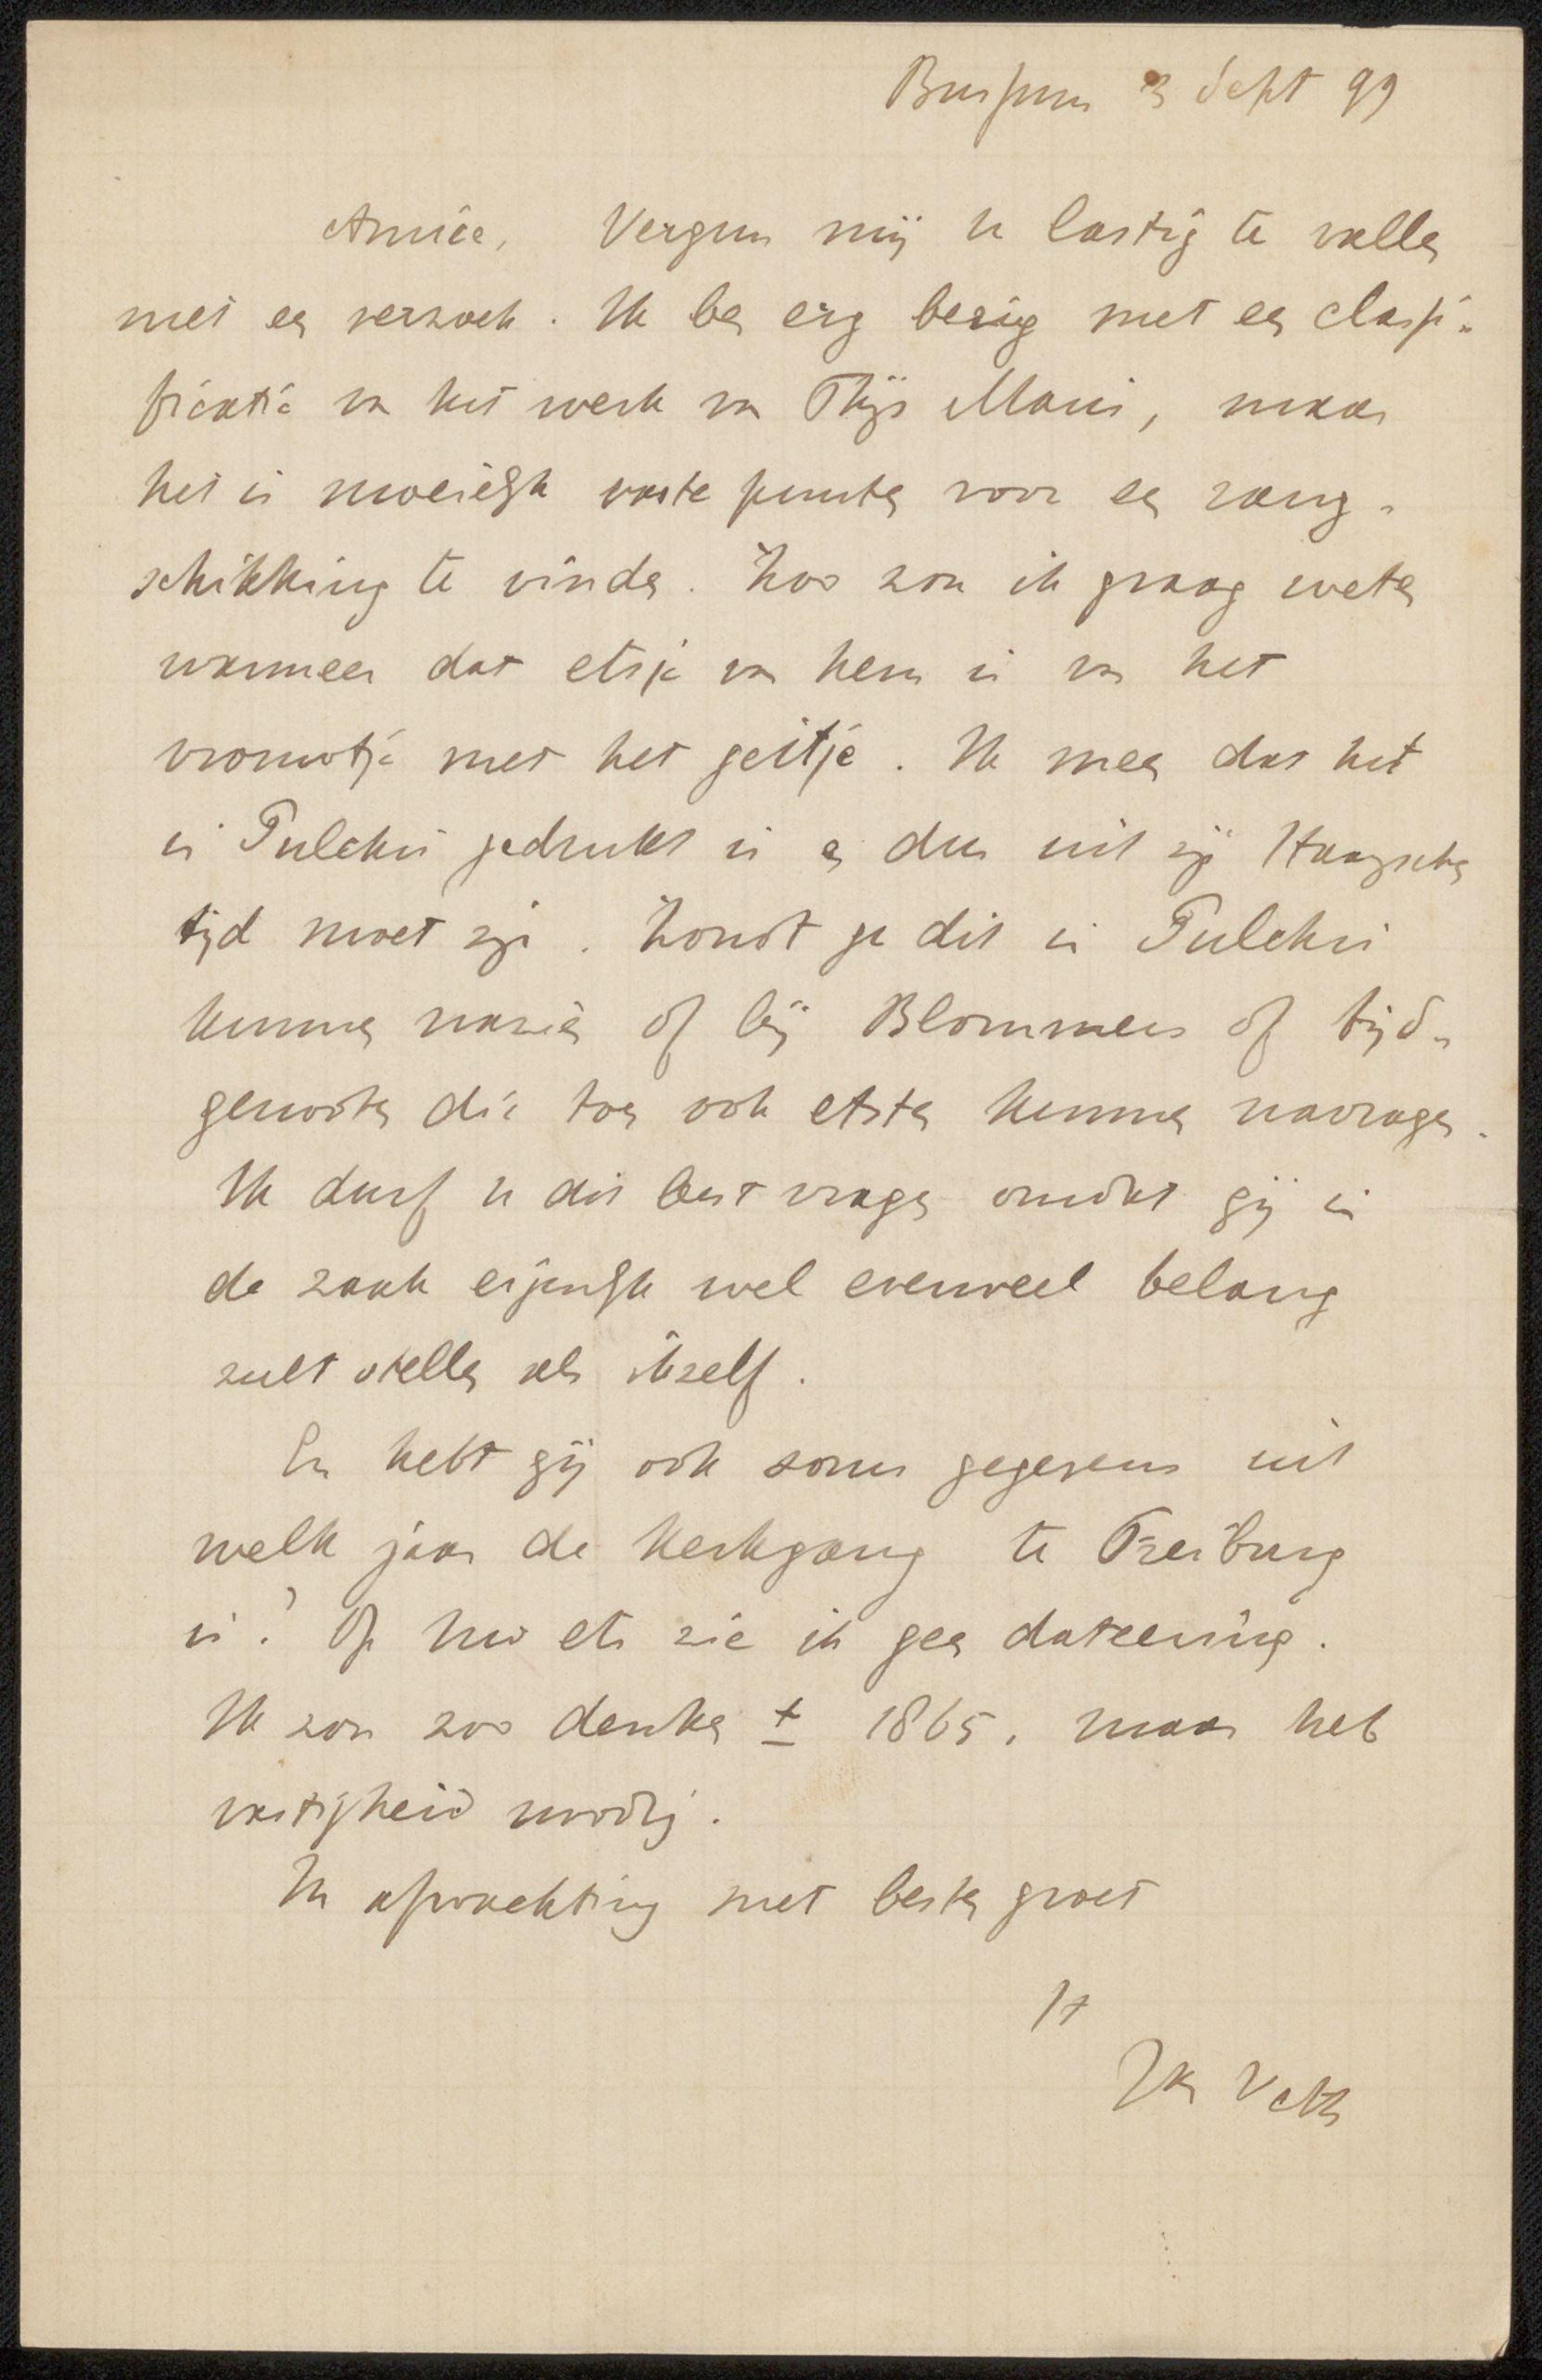 Bussum 3 Sept 99
Amice, Vergun mij U lastig te vallen
met een verzoek. Ik ben erg bezig met een classi-
ficatie van het werk van Thijs Maris, maar
het is moeielijk vaste punten voor een rang-
schikking te vinden. Zoo zou ik graag weten
wanneer dat etsje van hem is van het
vrouwtje met het geitje. Ik meen dat het
in Pulchri gedrukt is en dus uit zijn Haagschen
tijd moet zijn. Zoudt ge dit in Pulchri
kunnen nazien of bij Blommers of tijd-
genooten die toen ook etsten kunnen navragen.
Ik durf U dit best vragen omdat gij in
de zaak eigenlijk wel evenveel belang
zult stellen als ikzelf.
En hebt gij ook soms gegevens uit
welk jaar de Kerkgang te Freiburg
is? Op Uw ets zie ik geen dateering.
Ik zou zoo denken ± 1865, maar heb
vastigheid noodig.
In afwachting met besten groet
Jan Veth